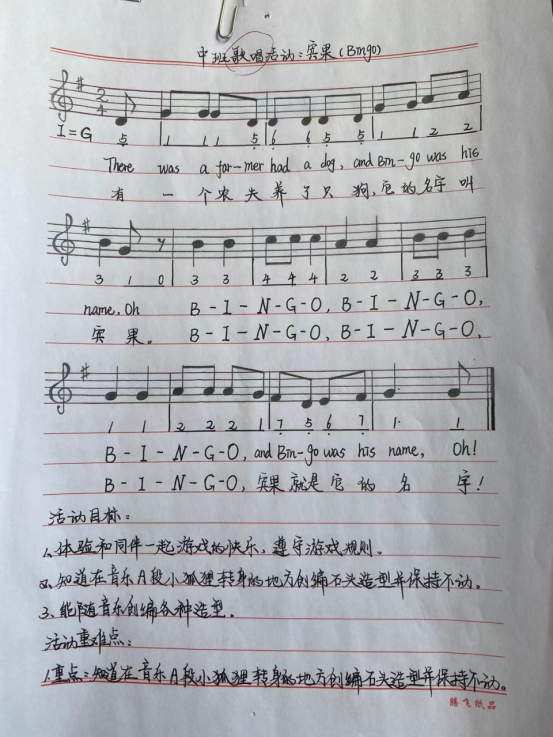 中班歌唱活动：宾果(Bingo)
2/4
1=G 5 1 1 1 5 6 6 5 5 1 1 2 2
There was a far-mer had a dog, and Bin-go was his
有 一 个农夫养了只狗，它的名字叫
3 1 0 3 3 4 4 4 2 2 3 3 3
name, Oh B-I-N-G-O, B-I-N-G-O,
宾果。 B-I-N-G-O, B-I-N-G-O,
1 1 2 2 2 1 7 5 6 7 1· 1
B-I-N-G-O, and Bin-go was his name, Oh!
B-I-N-G-O, 宾果就是它的名 字！
活动目标：
1、体验和同伴一起游戏的快乐，遵守游戏规则。
2、知道在音乐A段小狐狸转身的地方创编石头造型并保持不动。
3、能随音乐创编各种造型。
活动重难点：
1、重点：知道在音乐A段小狐狸转身的地方创编石头造型并保持不动。
腾飞纸品